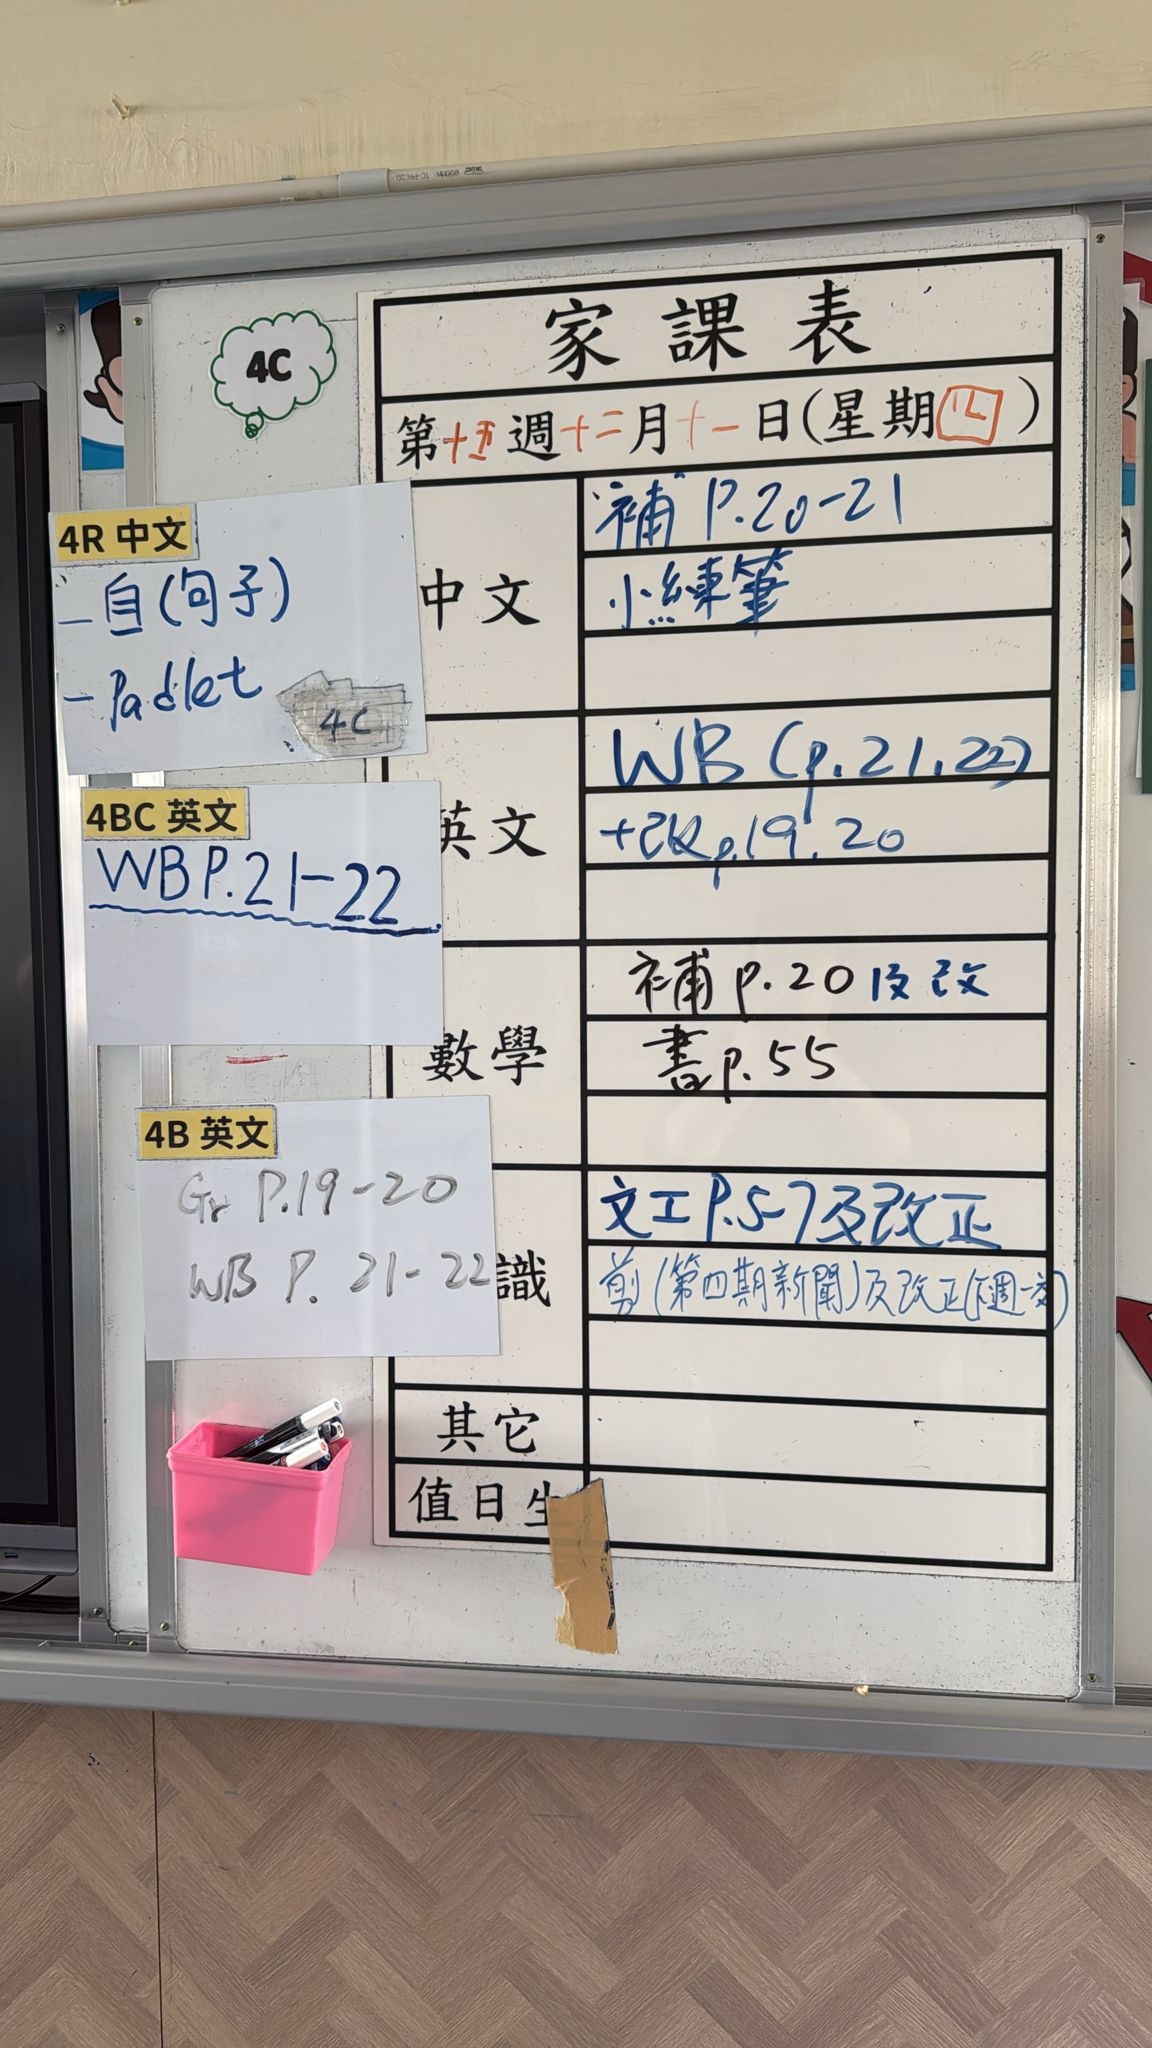 4C
家課表
第十五週十二月十一日(星期四)
4R 中文
- 自(句子)
- Padlet
4C
4BC 英文
WB P.21-22
4B 英文
Gr P.19-20
WB P. 21-22
中文
補 P.20-21
小練筆
英文
WB (p.21,22)
+改p.19.20
數學
補 p.20 及改
書 p.55
識
文工 P.5-7及改正
剪(第四期新聞)及改正(下週一交)
其它
值日生